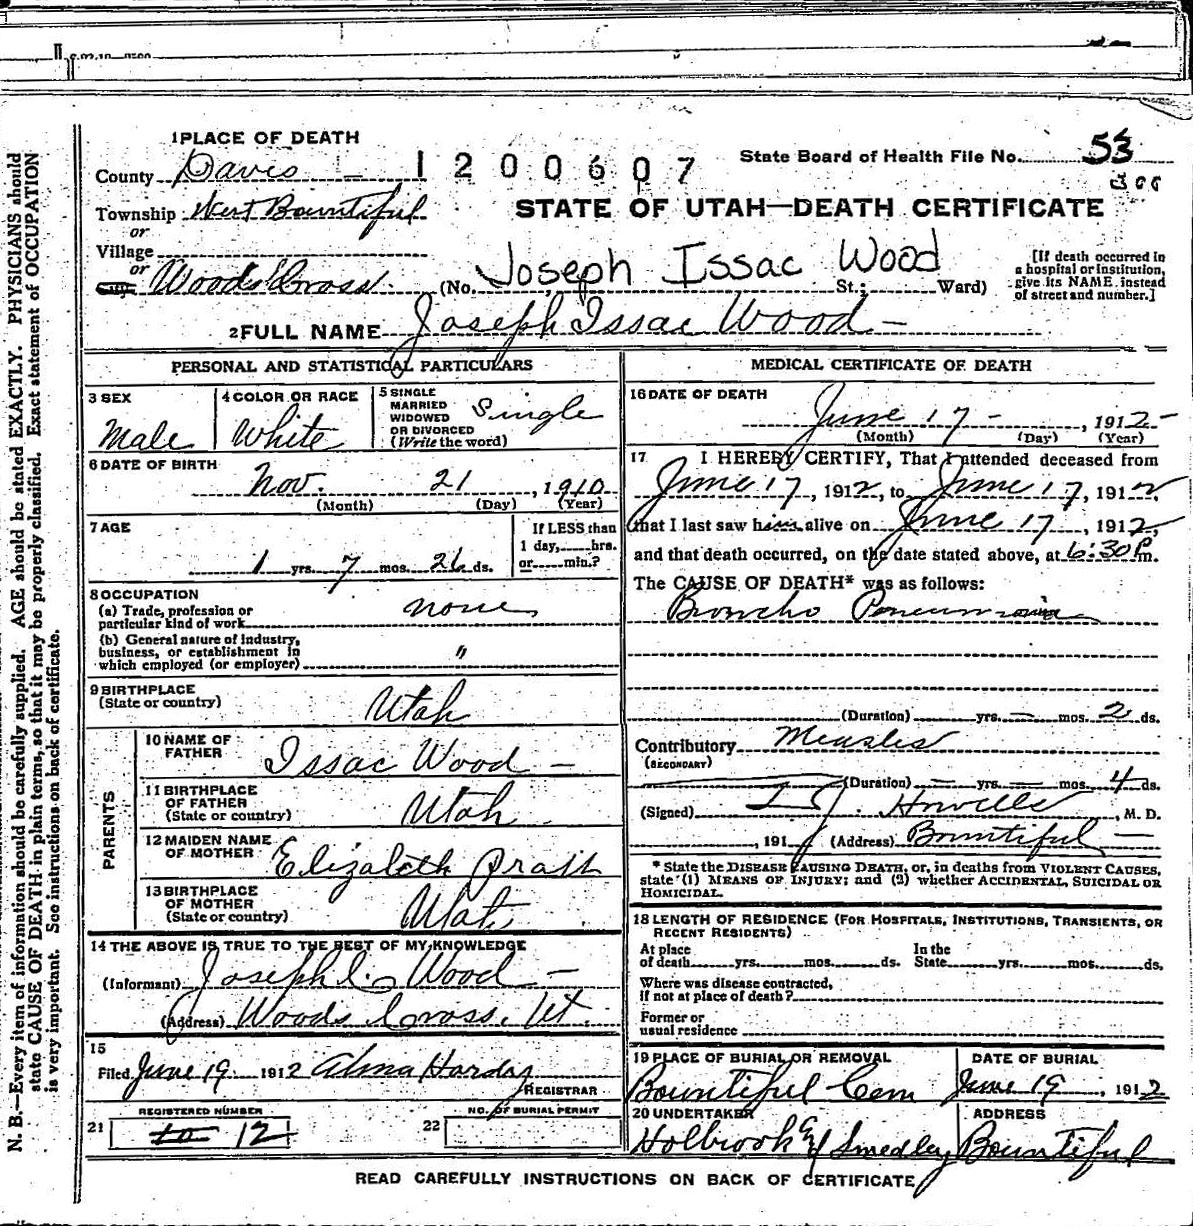 1 PLACE OF DEATH
County Davis — 1200607 State Board of Health File No. 53
300
Township West Bountiful STATE OF UTAH—DEATH CERTIFICATE
or
Village
or
City Woods Cross. (No. Joseph Issac Wood St.; Ward) [If death occurred in a hospital or institution, give its NAME instead of street and number.]
2 FULL NAME Joseph Issac Wood —
PERSONAL AND STATISTICAL PARTICULARS
3 SEX
Male
4 COLOR OR RACE
White
5 SINGLE
MARRIED
WIDOWED
OR DIVORCED
(Write the word)
Single
6 DATE OF BIRTH
Nov. 21, 1910
(Month) (Day) (Year)
7 AGE
1 yrs. 7 mos. 26 ds.
If LESS than
1 day, hrs.
or min.?
8 OCCUPATION
(a) Trade, profession or
particular kind of work none
(b) General nature of industry,
business, or establishment in
which employed (or employer) "
9 BIRTHPLACE
(State or country)
Utah
PARENTS
10 NAME OF
FATHER
Issac Wood —
11 BIRTHPLACE
OF FATHER
(State or country)
Utah
12 MAIDEN NAME
OF MOTHER
Elizabeth
13 BIRTHPLACE
OF MOTHER
(State or country)
Utah
14 THE ABOVE IS TRUE TO THE BEST OF MY KNOWLEDGE
(Informant) Joseph C. Wood —
(Address) Woods Cross, Ut.
15
Filed June 19 1912 Alma Hardy
REGISTRAR
REGISTERED NUMBER
21 12
NO. OF BURIAL PERMIT
22
MEDICAL CERTIFICATE OF DEATH
16 DATE OF DEATH
June 17 —, 1912 —
(Month) (Day) (Year)
17 I HEREBY CERTIFY, That I attended deceased from
June 17, 1912, to June 17, 1912,
that I last saw him alive on June 17, 1912,
and that death occurred, on the date stated above, at 6:30 P.m.
The CAUSE OF DEATH* was as follows:
Broncho Pneumonia
(Duration) yrs. — mos. 2 ds.
Contributory Measles
(SECONDARY)
(Duration) — yrs. — mos. 4 ds.
(Signed) Howells, M. D.
, 191 (Address) Bountiful —
* State the DISEASE CAUSING DEATH, or, in deaths from VIOLENT CAUSES,
state (1) MEANS OF INJURY; and (2) whether ACCIDENTAL, SUICIDAL OR
HOMICIDAL.
18 LENGTH OF RESIDENCE (FOR HOSPITALS, INSTITUTIONS, TRANSIENTS, OR
RECENT RESIDENTS)
At place
of death yrs. mos. ds.
In the
State yrs. mos. ds.
Where was disease contracted,
if not at place of death?
Former or
usual residence
19 PLACE OF BURIAL OR REMOVAL
Bountiful Cem
DATE OF BURIAL
June 19, 1912
20 UNDERTAKER
Holbrook & Smedley
ADDRESS
Bountiful
READ CAREFULLY INSTRUCTIONS ON BACK OF CERTIFICATE
N. B.—Every item of information should be carefully supplied. AGE should be stated EXACTLY. PHYSICIANS should
state CAUSE OF DEATH in plain terms, so that it may be properly classified. Exact statement of OCCUPATION
is very important. See instructions on back of certificate.